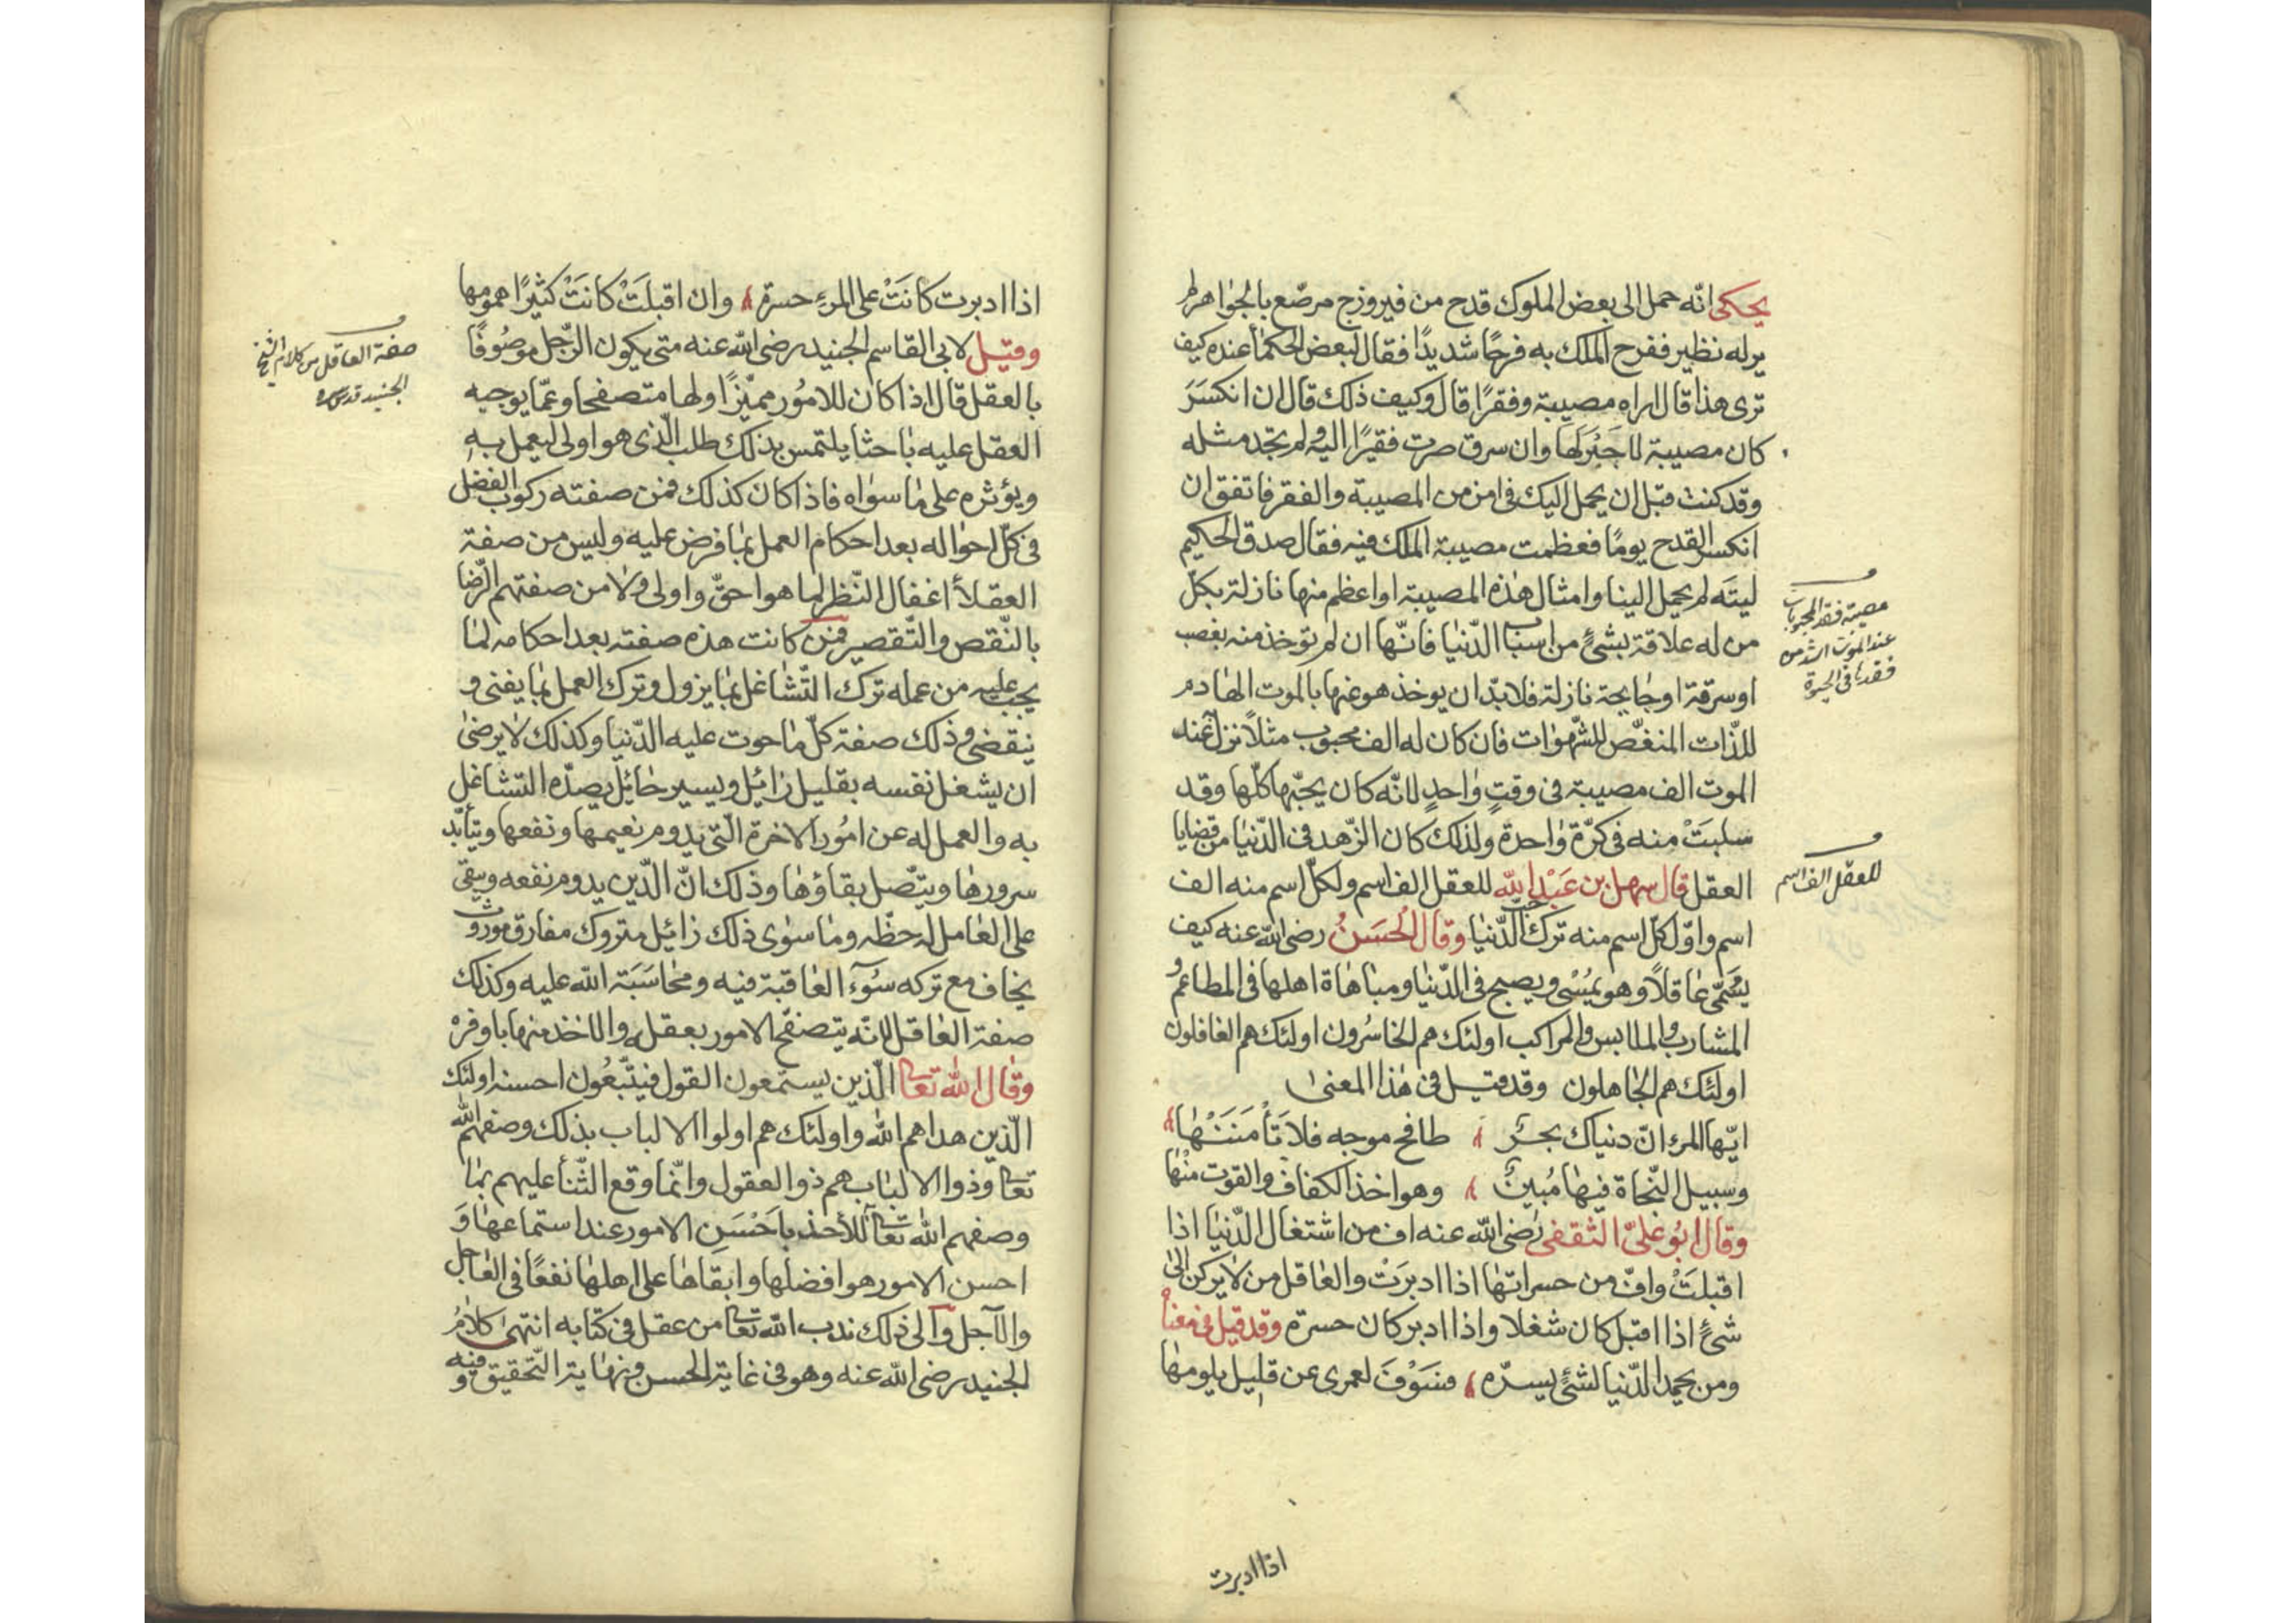 يحكى انّه حمل الى بعض الملوك قدح من فيروزج مرصّع بالجواهر لم
ير له نظير ففرح الملك به فرحًا شديدًا فقال لبعض الحكمأ عنده كيف
ترى هذا قال اراه مصيبة وفقرًا قال وكيف ذلك قال ان انكسَرَ
كان مصيبة لا جَبْرَ لها وان سرق صرت فقيرًا اليه ولم تجد مثله
وقد كنت قبل ان يحمل اليك فى امن من المصيبة والفقر فاتفق ان
انكسر القدح يومًا فعظمت مصيبة الملك فيه فقال صدق الحكيم
ليتَه لم يحمل الينا وامثال هذه المصيبة او اعظم منها نازلة بكلّ
من له علاقة بشئٍ من اسباب الدّنيا فانّها ان لم تؤخذ منه بغصب
او سرقة او جايحة نازلة فلا بدّ ان يوخذ هو عنها بالموت الهادم
للذّات المنغّص للشّهوات فان كان له الف محبوب مثلاً نزل عنه
الموت الف مصيبة فى وقتٍ واحدٍ لانّه كان يحبّها كلّها وقد
سلبَتْ منه فى كرّة واحدة ولذلك كان الزّهد فى الدّنيا من قضايا
العقل قال سهل بن عَبْد الله للعقل الف اسم ولكلّ اسم منه الف
اسم واوّل كلّ اسم منه ترك حبّ الدّنيا وقال الحَسَنُ رضى الله عنه كيف
يسَمّى عاقلاً وهو يمُسْى ويصبح فى الدّنيا ومباهاة اهلها فى المطاعم و
المشارب والملابس والمراكب اولئك هم الخاسُرون اولئك هم الغافلون
اولئك هم الجاهلون وقد قيل فى هذا المعنى
ايّها المرء انّ دنياك بحرٌ طافح موجه فلا تَأْمَنَنْهَا
وسبيل النّجاة فيها مُبينٌ وهو اخذ الكفاف والقوت منْها
وقال ابُو علىّ الثقفى رضى الله عنه اف من اشتغال الدّنيا اذا
اقبلَتْ وافّ من حسراتها اذا ادبرَتْ والعاقل من لا يركن الى
شئٍ اذا اقبل كان شغلا واذا ادبر كان حسرة وقد قيل فى معناه
ومن يحمد الدّنيا لشئٍ يسرّه فسَوْفَ لعمرى عن قليل يلومها
اذا ادبرت
مصيبة فقد المحبوبات
عند الموت اشد من
فقدها فى الحيوة
للعقل الف اسم
اذا ادبرت كانَتْ على المرءِ حسرة وان اقبلَتْ كانَتْ كثيرًا همومها
وقيل لابى القاسم الجنيد رضى الله عنه متى يكون الرّجل موصُوفًا
بالعقل قال اذا كان للامُور مميّزًا ولها متصفحا وعمّا يوجبه
العقل عليه باحثا يلتمس بذلك طلب الّذى هو اولى ليعمل به
ويؤثره على ما سواه فاذا كان كذلك فمن صفته ركوب الفضل
فى كلّ احواله بعد احكام العمل بما فرض عليه وليس من صفة
العقلأ اغفال النّظر لما هو احقّ واولى ولا من صفتهم الرّضا
بالنّقص والتّقصير فمن كانت هذه صفته بعد احكامه لما
يجب عليه من عمله ترك التّشاغل بما يزول وترك العمل بما يفنى و
ينقضى وذلك صفة كلّ ما حوت عليه الدّنيا وكذلك لا يرضى
ان يشغل نفسه بقليل زائيل ويسير حائيل يصدّه التشاغل
به والعمل له عن امُور الاخرة الّتى يدوم نعيمها ونفعها ويتأبّد
سرورها ويتّصل بقاؤها وذلك انّ الّذين يدوم نفعه ويبقى
على العامل له حظّه وما سوى ذلك زائيل متروك مفارق موروث
يخاف مع تركه سُوٓء العاقبة فيه ومحاسَبَة الله عليه وكذلك
صفة العاقل لانّه يتصفّح الامور بعقله والاخذ منها باوفرْ
وقال الله تعالى الّذين يستمعون القول فيتّبعُون احسنه اولئك
الّذين هداهم الله واولئك هم اولوا الالباب بذلك وصفهم الله
تعالى وذوا الالباب هم ذو العقول وانّما وقع الثّنأ عليهم بما
وصفهم الله تعالى للأخذ باَحْسَنِ الامور عند استماعها وَ
احسن الامور هو افضلها وابقاها على اهلها نفعًا فى العاجل
والآجل وآلى ذلك ندب الله تعالى من عقل فى كتابه انتهى كلامُ
الجنيد رضى الله عنه وهو فى غاية الحسن ونهاية التّحقيق وفيه
صفة العاقل من كلام الشيخ
الجنيد قدس سره